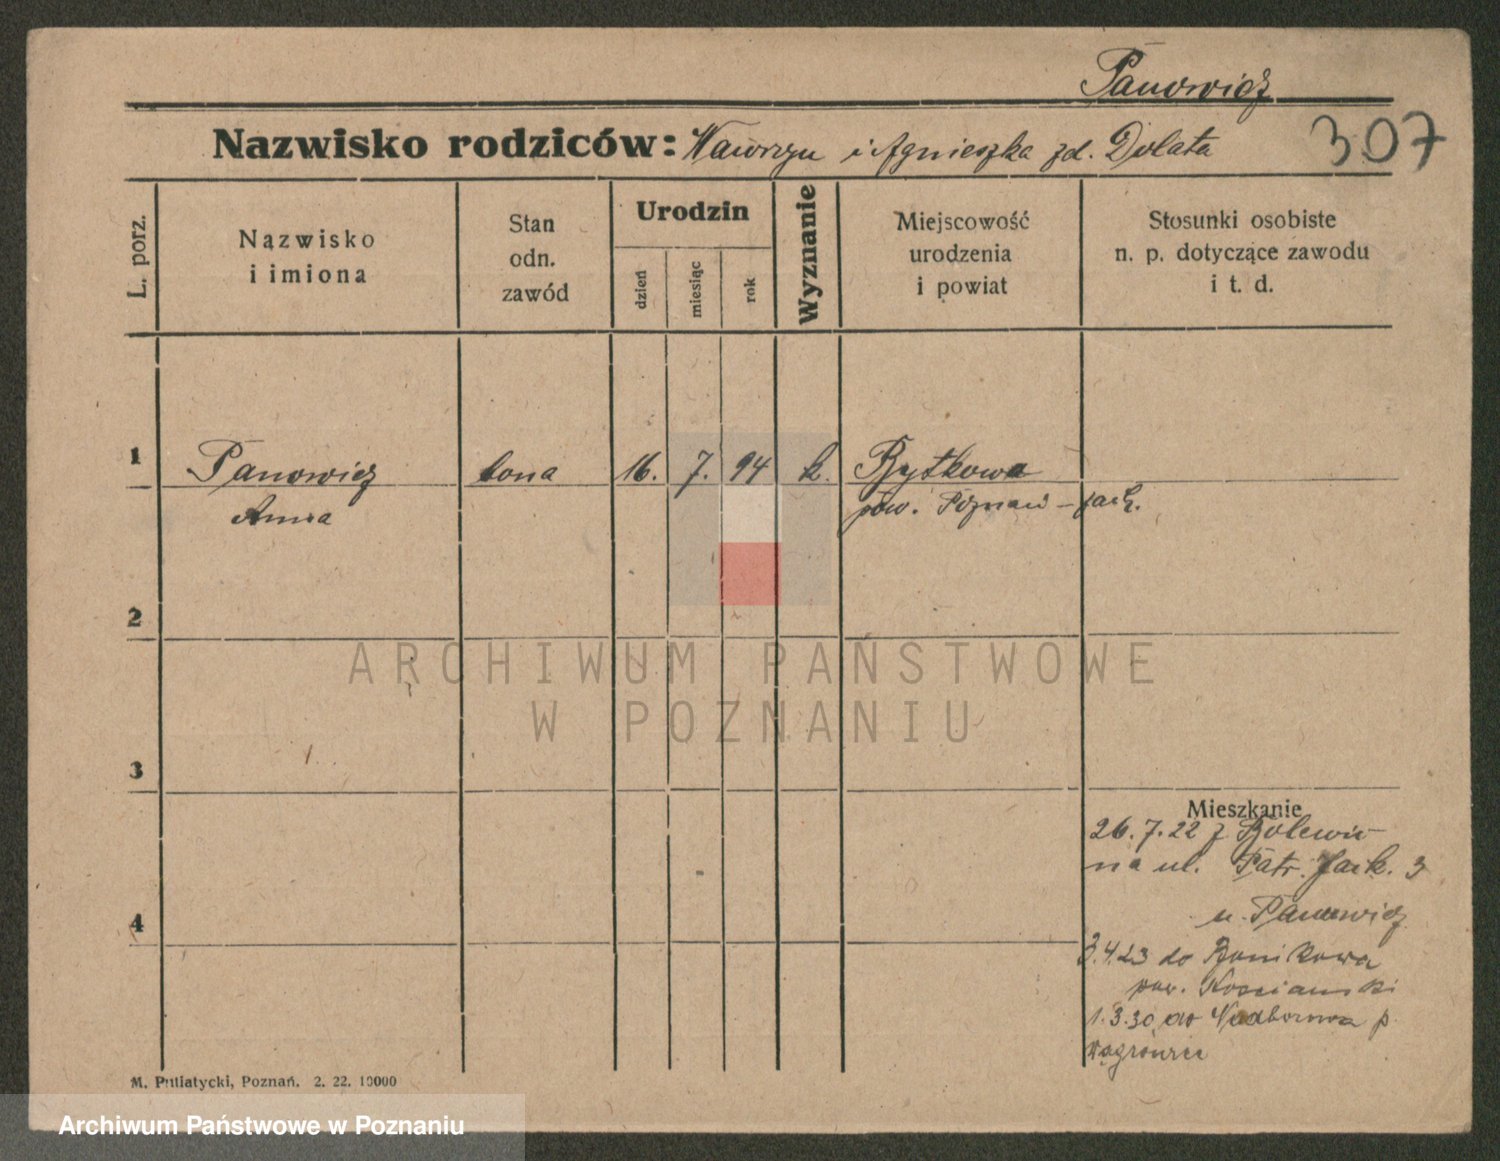 Panowicz
Nazwisko rodziców: Wawrzyn i Agnieszka zd. Dolata 307
L. porz.
Nazwisko
i imiona
Stan
odn.
zawód
Urodzin
dzień
miesiąc
rok
Wyznanie
Miejscowość
urodzenia
i powiat
Stosunki osobiste
n. p. dotyczące zawodu
i t. d.
1 Panowicz żona 16. 7. 94 k. Bytkowa
Anna pow. Poznań - zach.
2
ARCHIWUM PAŃSTWOWE
W POZNANIU
3
Mieszkanie
26.7.22 z
na ul. Patr. Jack. 3
u. Panowicz
4
3.4.23 do Bonikowa
pow. Kościański
1.3.30 do p.
Wągrowiec
M. Putiatycki, Poznań. 2. 22. 10000
Archiwum Państwowe w Poznaniu